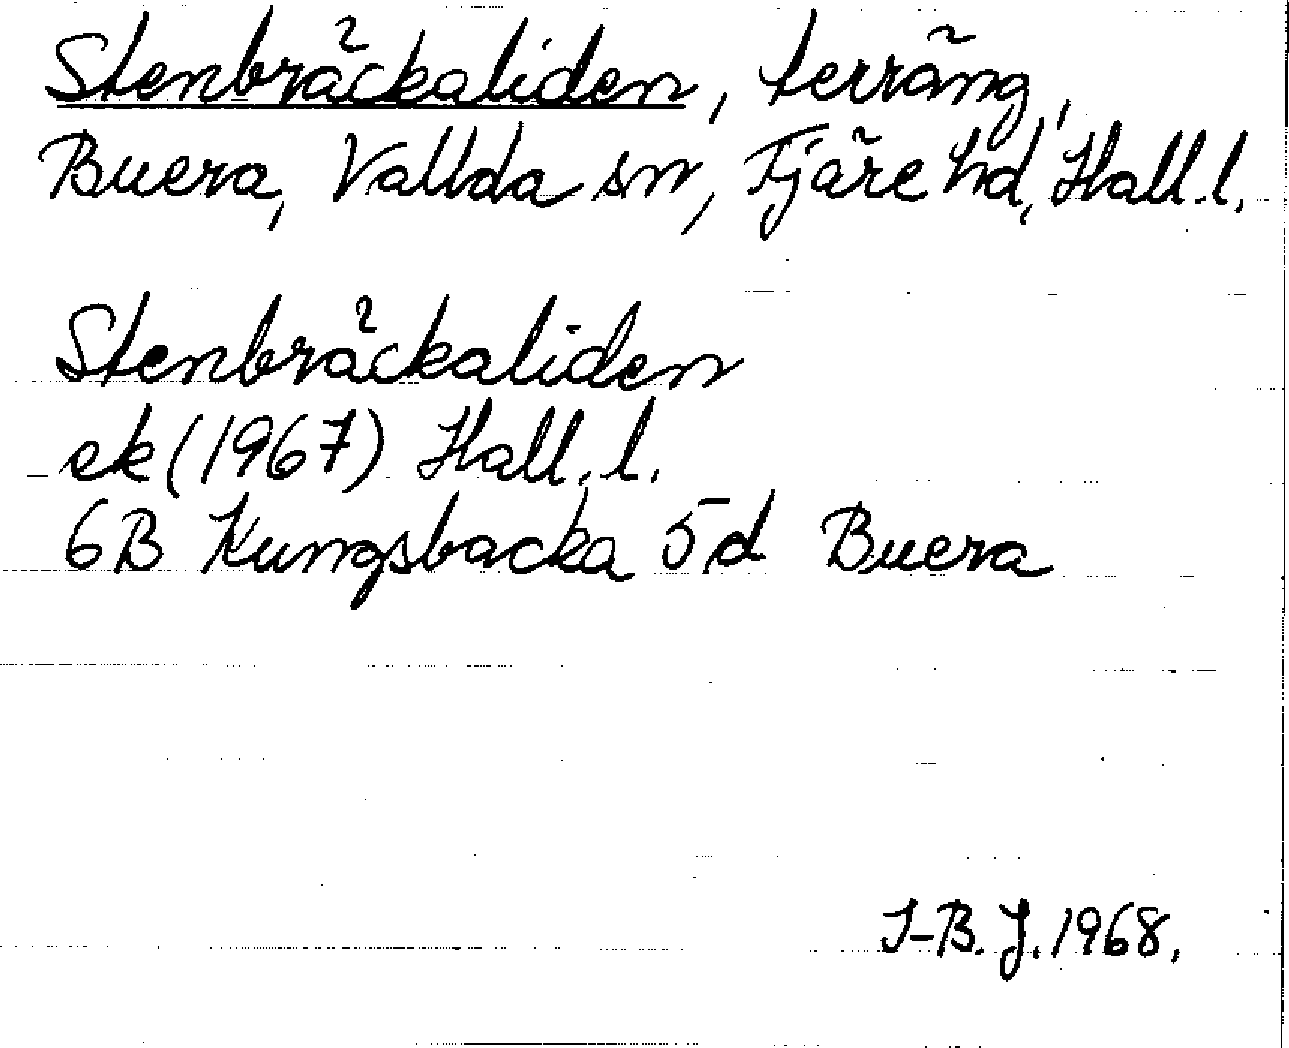 Stenbräckaliden, terräng,
Buera, Vallda sn, Fjäre hd, Hall. l.
Stenbräckaliden
ek (1967) Hall. l.
6B Kungsbacka 5d Buera
I-B. J. 1968.